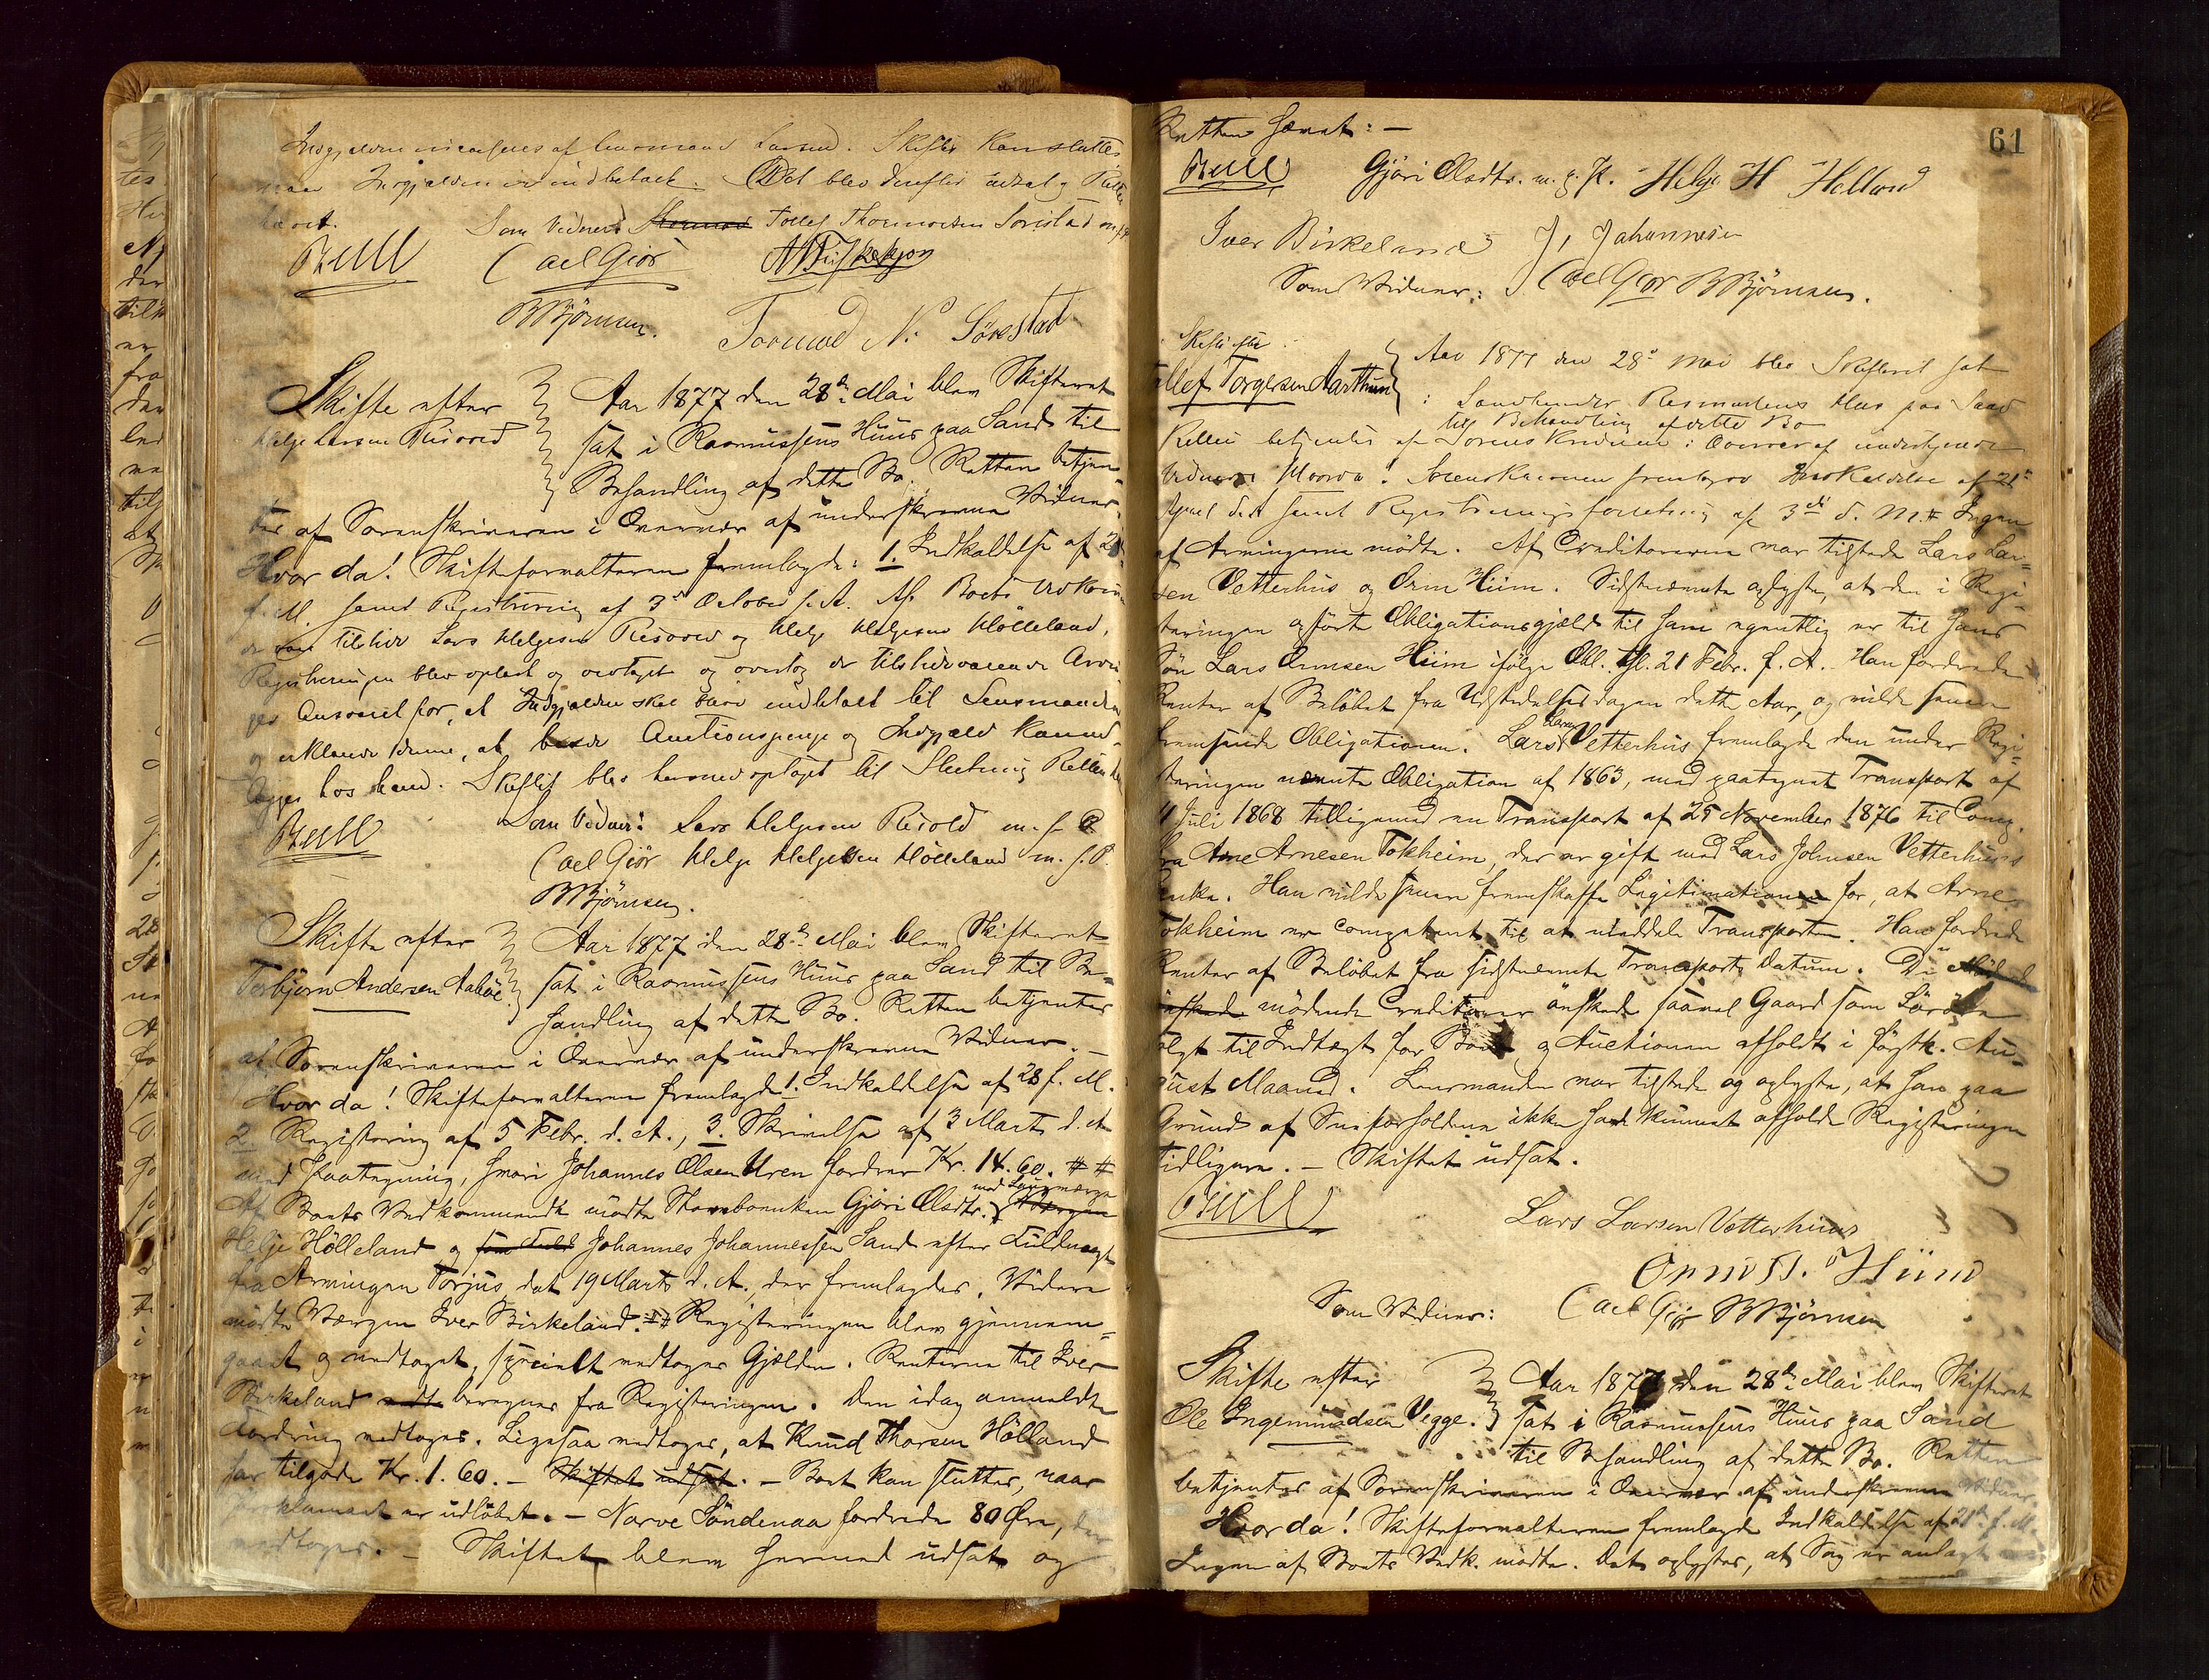 Indgjelden af Lensmand Larsen. Skiftet kan sluttes
naar Indgjelden er indbetalt. Det blev derefter udsat og Retten
hævet. Som Vidner: Tollef Thormodsen Sørestad m. f. P.
Bull Carl Giör
BBjörnsen. Tormod N. Sörestad
Skifte efter Aar 1877 den 28de Mai blev Skifteret
Helge Larsen Risvold sat i Rasmussens Huus paa Sand til
Behandling af dette Bo. Retten betjen-
tes af Sorenskriveren i Overvær af underskrevne Vidner.
Hvor da! Skifteforvalteren fremlagde: 1. Indkaldelse af 28
f. M. samt Registrering af 3de October f. A. Af Boets Vedkom
er tilstede Lars Helgesen Risvold og Helge Helgesen Hölleland.
Registreringen blev oplæst og vedtaget og overtog de tilstedeværende Arvin
ges Ansvaret for, at Indgjelden skal være indbetalt til Lensmanden
og erklærede denne, at baade Auctionspenge og Indgjeld kunde
lægges hos ham. Skiftet blev hermed optaget til Slutning Retten hævet
Bull Som Vidner: Lars Helgesen Risvold m. f. P.
Carl Giör Helge Helgesen Hölleland m. f. P.
BBjörnsen.
Skifte efter Aar 1877 den 28de Mai blev Skifteret
Torbjørn Andersen Aabøe. sat i Rasmussens Huus paa Sand til Be=
handling af dette Bo. Retten betjentes
af Sorenskriveren i Overvær af underskrevne Vidner. –
Hvor da! Skifteforvalteren fremlagde 1. Indkaldelse af 28 f. M.
2. Registrering af 5 Febr. d. A., 3. Skrivelse af 3 Marts d. A.
med Paategning, hvori Johannes Olsen Uren fordrer Kr. 14.60. ##
Af Boets Vedkommende mödte Stervboenken Gjöri Olsdtr. med Laugværge
Helje Hölleland og som Fuld Johannes Johannessen Sand efter Fuldmagt
fra Arvingen Torjus, dat. 19 Marts d. A., der fremlagdes. Videre
mödte Værgen Iver Birkeland. ## Registreringen blev gjennem=
gaaet og vedtaget, specielt vedtoges Gjælden. Renterne til Iver
Birkeland vedt beregnes fra Registreringen. Den idag anmeldte
Fordring vedtoges. Ligesaa vedtoges, at Knud Thorsen Hölland
har tilgode Kr. 1.60. – Skiftet udsat. – Boet kan sluttes, naar
Proklamaet er udlöbet. – Narve Söndenaa fordrede 80 Øre, der
vedtoges. – Skiftet blev hermed udsat og
61
Retten hævet: –
Bull Gjöri Olsdtr. m. f. P. Helje H Helland
Iver Birkeland J, Johannesen
Som Vidner: Carl Giör BBjörnsen.
Skifte efter Aar 1877 den 28de Mai blev Skifteret sat
Tollef Torgersen Aarthun i Landhandler Rasmussens Hus paa Sand
til Behandling af dette Bo
Retten betjentes af Sorenskriveren i Overvær af undertegnede
Vidner. Hvorda! Sorenskriveren fremlagde Indkaldelse af 21de
April d. A. samt Registreringsforretning af 3die d. M. # Ingen
af Arvingerne mödte. Af Creditorerne var tilstede Lars Lar=
sen Vetterhus og Orm Hiim. Sidstnævnte oplyste, at den i Regi=
streringen opförte Obligationsgjæld til ham egentlig er til hans
Sön Lars Ormsen Hiim ifölge Obl. tgl. 21 Febr. f. A. Han fordrede
Renter af Belöbet fra Udstedelsesdagen dette Aar, og vilde senere
fremsende Obligationen. Lars Larsen Vetterhus fremlagde den under Regi=
streringen nævnte Obligation af 1863, med paategnet Transport af
4 Juli 1868 tilligemed en Transport af 25 November 1876 til Comp.
fra Arne Arnesen Tokheim, der er gift med Lars Johnsen Vetterhuus
Enke. Han vilde senere fremskaffe Legitimation for, at Arne
Tokheim er competent til at meddele Transporten. Han fordrede
Renter af Belöbet fra sidstnævnte Transports Datum. De
önskede mödende Creditorer önskede saavel Gaard som Lösöre
solgt til Indtægt for Boet og Auctionen afholdt i förstk. Au=
gust Maaned. Lensmanden var tilstede og oplyste, at han paa
Grund af Sneforholdene ikke havde kunnet afholde Registreringen
tidligere. – Skiftet udsat.
Bull Lars Larsen Vetterhuus
Orm T. Hiim
Som Vidner: Carl Giör BBjörnsen
Skifte efter Aar 1877 den 28de Mai blev Skifteret
Ole Ingemundsen Vegge. sat i Rasmussens Huus paa Sand
til Behandling af dette Bo. Retten
betjentes af Sorenskriveren i Overvær af underskrevne Vidner.
Hvor da! Skifteforvalteren fremlagde Indkaldelse af 21de f. M.
Ingen af Boets Vedk. mödte. Det oplystes, at Sag er anlagt